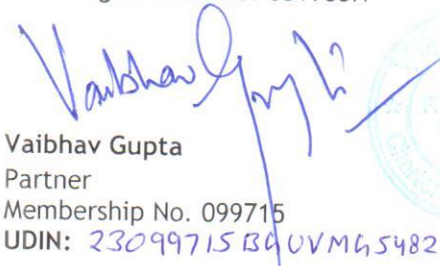 Vaibhav Gupta
Vaibhav Gupta
Partner
Membership No. 099715
UDIN: 23099715BGUVMG5482